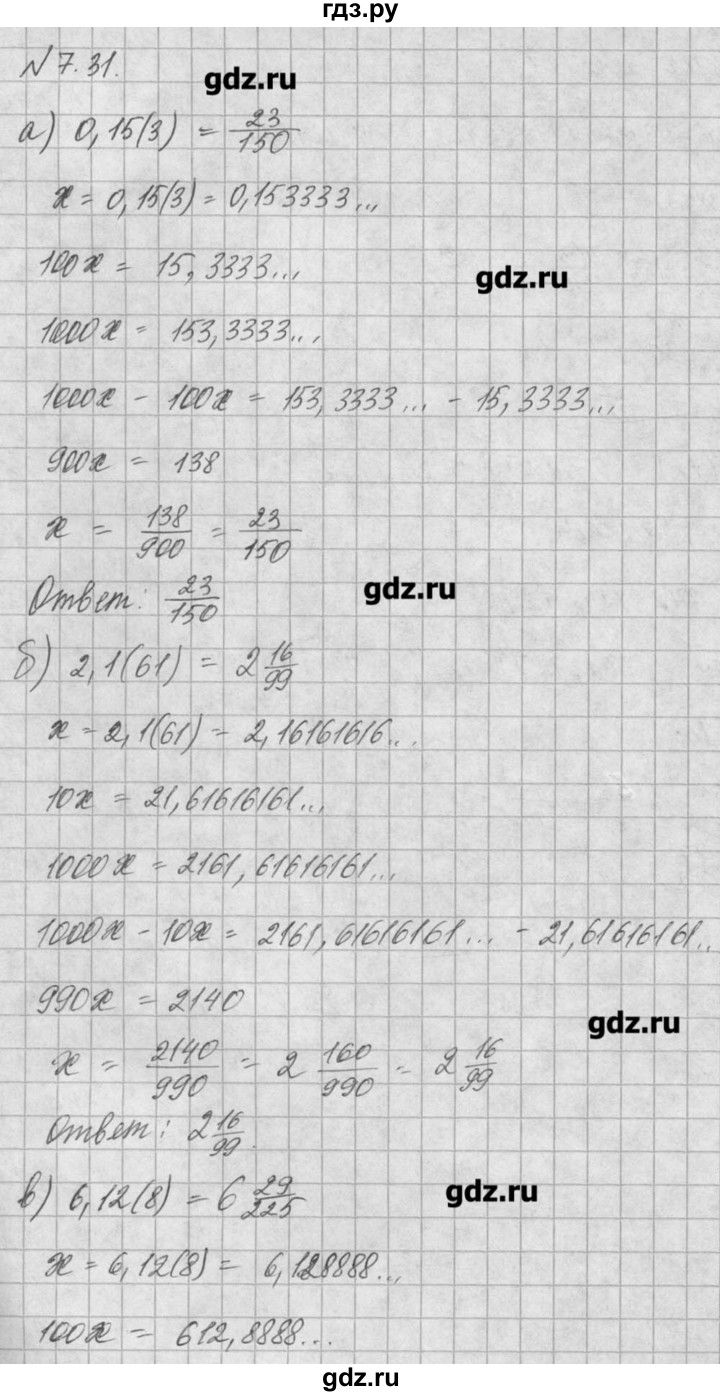 гдз.ру
№7.31.
gdz.ru
а) 0,15(3) = 23/150
x = 0,15(3) = 0,153333...
100x = 15,3333...
gdz.ru
1000x = 153,3333...
1000x - 100x = 153,3333... - 15,3333...
900x = 138
x = 138/900 = 23/150
gdz.ru
Ответ: 23/150
б) 2,1(61) = 2 16/99
x = 2,1(61) = 2,16161616...
10x = 21,61616161...
1000x = 2161,61616161...
1000x - 10x = 2161,61616161... - 21,61616161..
990x = 2140
gdz.ru
x = 2140/990 = 2 160/990 = 2 16/99
Ответ: 2 16/99.
в) 6,12(8) = 6 29/225
gdz.ru
x = 6,12(8) = 6,128888...
100x = 612,8888...
gdz.ru